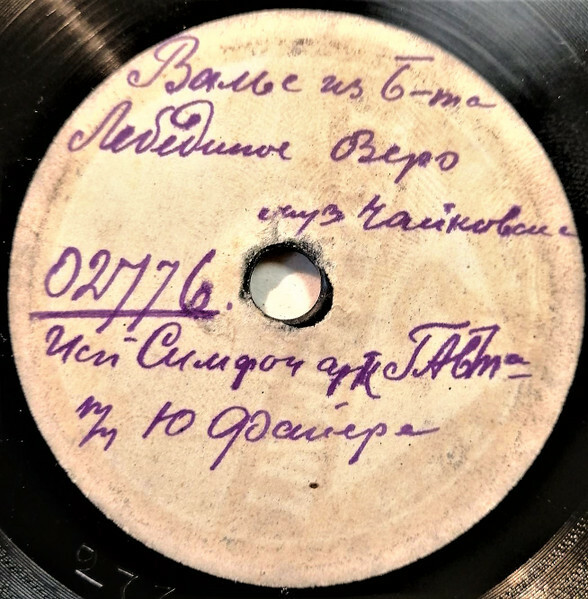 Вальс из б-та
Лебединое Озеро
муз Чайковск
02776.
Исп Симфон орк ГАБТа
п/у Ю Файера
277